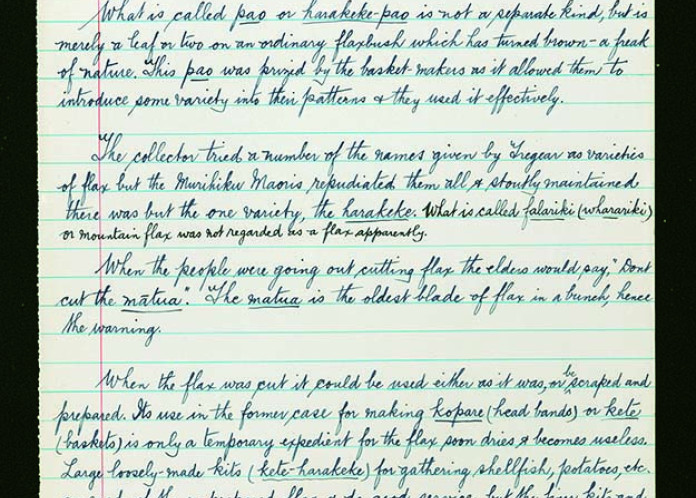 What is called pao or harakeke-pao is not a separate kind, but is
merely a leaf or two on an ordinary flaxbush which has turned brown - a freak
of nature. This pao was prized by the basket makers as it allowed them to
introduce some variety into their patterns & they used it effectively.
The collector tried a number of the names given by Tregear as varieties
of flax but the Murihiku Maoris repudiated them all & stoutly maintained
there was but the one variety, the harakeke. What is called falariki (wharariki)
or mountain flax was not regarded as a flax apparently.
When the people were going out cutting flax the elders would say, "Dont
cut the mātua". The matua is the oldest blade of flax in a bunch, hence
the warning.
When the flax was cut it could be used either as it was, or be scraped and
prepared. Its use in the former case for making kopare (head bands) or kete
(baskets) is only a temporary expedient for the flax soon dries & becomes useless.
Large loosely-made kits (kete-harakeke) for gathering shellfish, potatoes, etc.